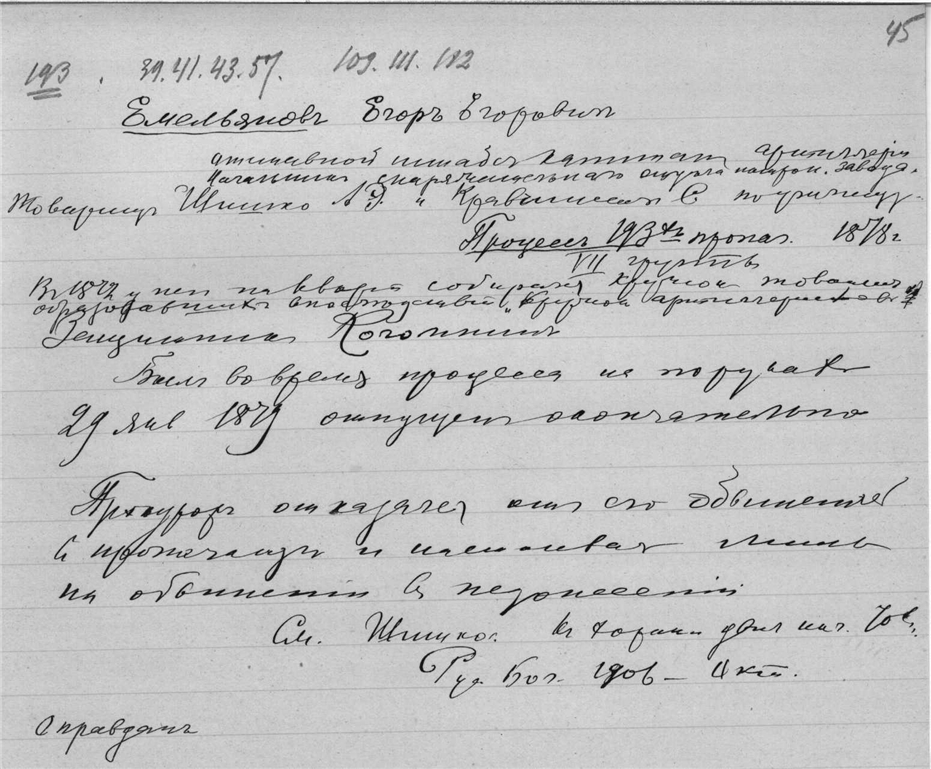 45
193. 39.41.43.57. 109. III. 182
Емельяновъ Егоръ Егоровичъ
отставной штабсъ капитанъ артиллеріи
начальникъ снаряжательнаго отдѣла патрон. завода.
Товарищъ Шишко Л Э и Кравчинскаго С по училищу
Процессъ 193хъ пропаг. 1878 г
VII группы
Въ 1872 у него на кварт собирался кружокъ
образовавшихъ впослѣдствіи "кружокъ артиллеристовъ"
Былъ во время процесса на порукахъ
29 янв 1878 отпущенъ окончательно
Прокуроръ отказался отъ его обвиненія
въ пропагандѣ и настаивалъ лишь
на обвиненіи въ недонесеніи
См. Шишко. Къ характ движ нач. 70хъ г.
Рус. Бог. 1906 – Окт.
Оправданъ